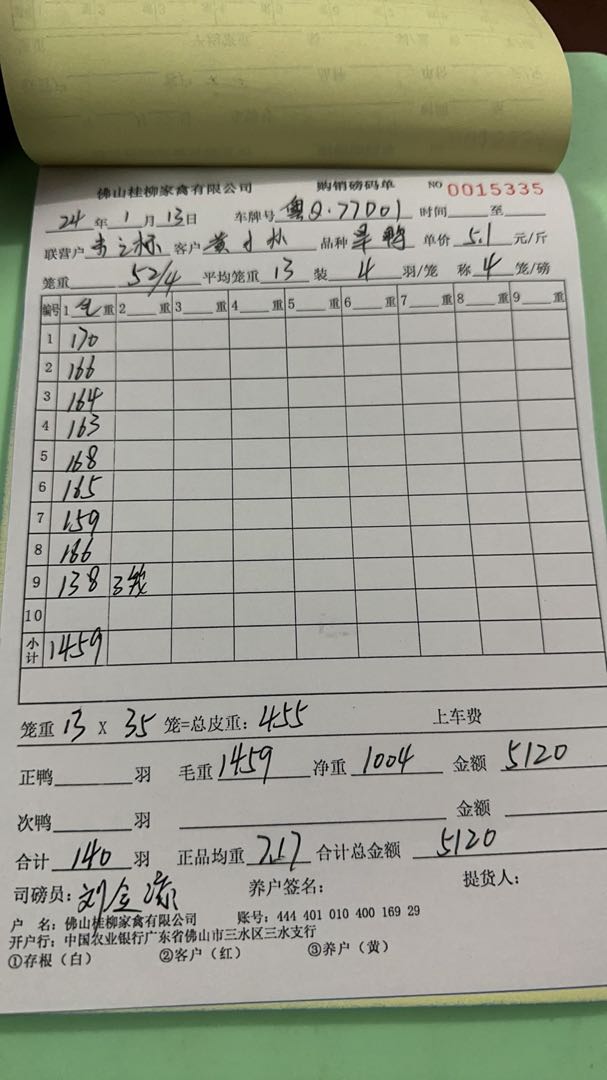 佛山桂柳家禽有限公司 购销磅码单 NO 0015335
24年1月13日 车牌号 粤Q·77D01 时间 至
联营户 李之标 客户 黄小林 品种 旱鸭 单价 5.1 元/斤
笼重 52/4 平均笼重 13 装 4 羽/笼 称 4 笼/磅
编号 1 毛 重 2 重 3 重 4 重 5 重 6 重 7 重 8 重 9 重
1 170
2 166
3 164
4 163
5 168
6 165
7 159
8 166
9 138 3笼
10
小计 1459
笼重 13 X 35 笼=总皮重: 455 上车费
正鸭 羽 毛重 1459 净重 1004 金额 5120
次鸭 羽 金额
合计 140 羽 正品均重 7.17 合计总金额 5120
司磅员: 刘金 养户签名: 提货人:
户 名: 佛山桂柳家禽有限公司 账号: 444 401 010 400 169 29
开户行: 中国农业银行广东省佛山市三水区三水支行
①存根（白） ②客户（红） ③养户（黄）